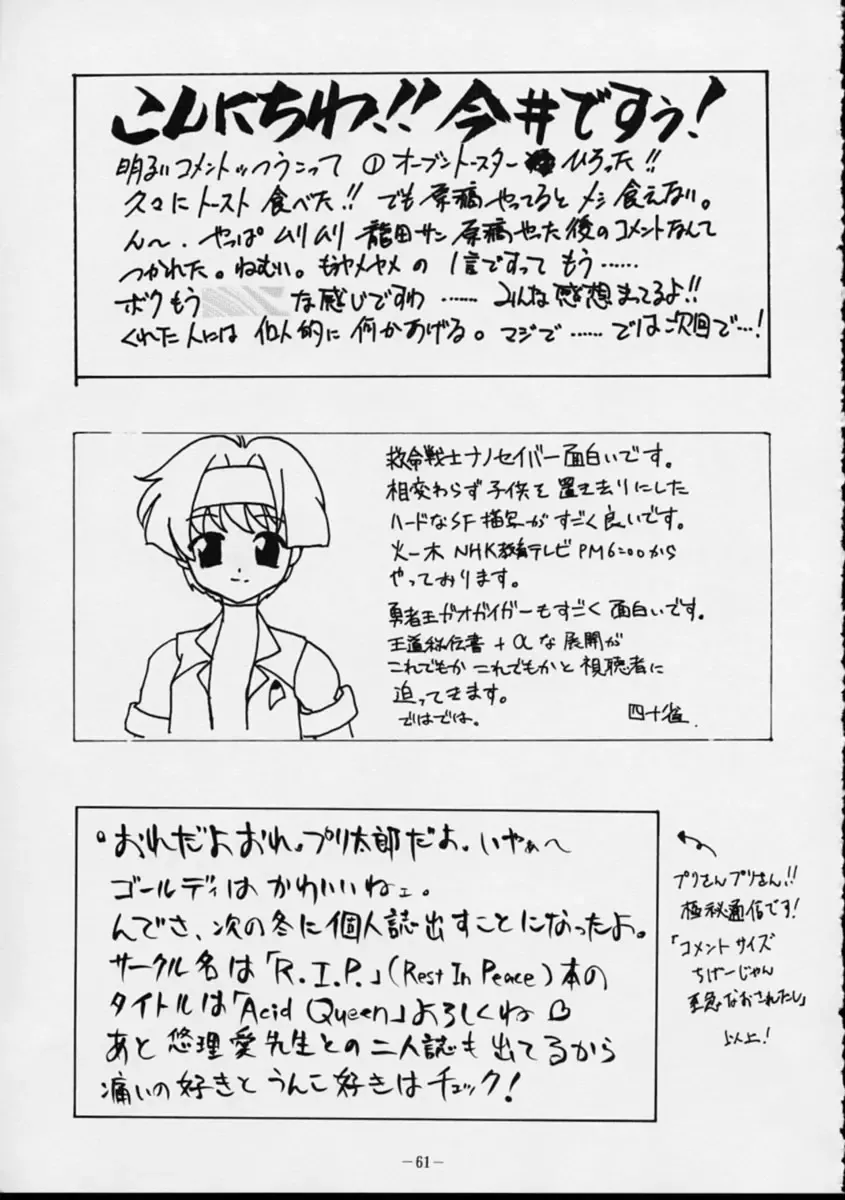 こんにちわ!!今井ですぅ!
明るいコメントっつうことって ① オーブントースター ひろった!!
久々にトースト食べた!! でも原稿やってるとメシ食えない。
ん〜. やっぱムリムリ 龍田サン原稿やった後のコメントなんて
つかれた。ねむい。もうヤメヤメの1言ですって もう……
ボクもう な感じですわ …… みんな感想まってるよ!!
くれた人には個人的に何かあげる。マジで……では次回で…!
救命戦士ナノセイバー面白いです。
相変わらず子供を置き去りにした
ハードなSF描写がすごく良いです。
火〜木 NHK教育テレビ PM6:00から
やっております。
勇者王ガオガイガーもすごく面白いです。
王道秘伝書+αな展開が
これでもかこれでもかと視聴者に
迫ってきます。
ではでは。 四十雀.
おれだよおれ。プリ太郎だよ。いやぁ〜
ゴールディはかわいいねェ。
んでさ、次の冬に個人誌出すことになったよ。
サークル名は「R.I.P.」(Rest In Peace)本の
タイトルは「Acid Queen」よろしくね♡
あと悠理愛先生との二人誌も出てるから
痛いの好きとうんこ好きはチェック!
プリさんプリさん!!
極秘通信です!
「コメントサイズ
ちげーじゃん
至急なおされたし」
以上!
-61-